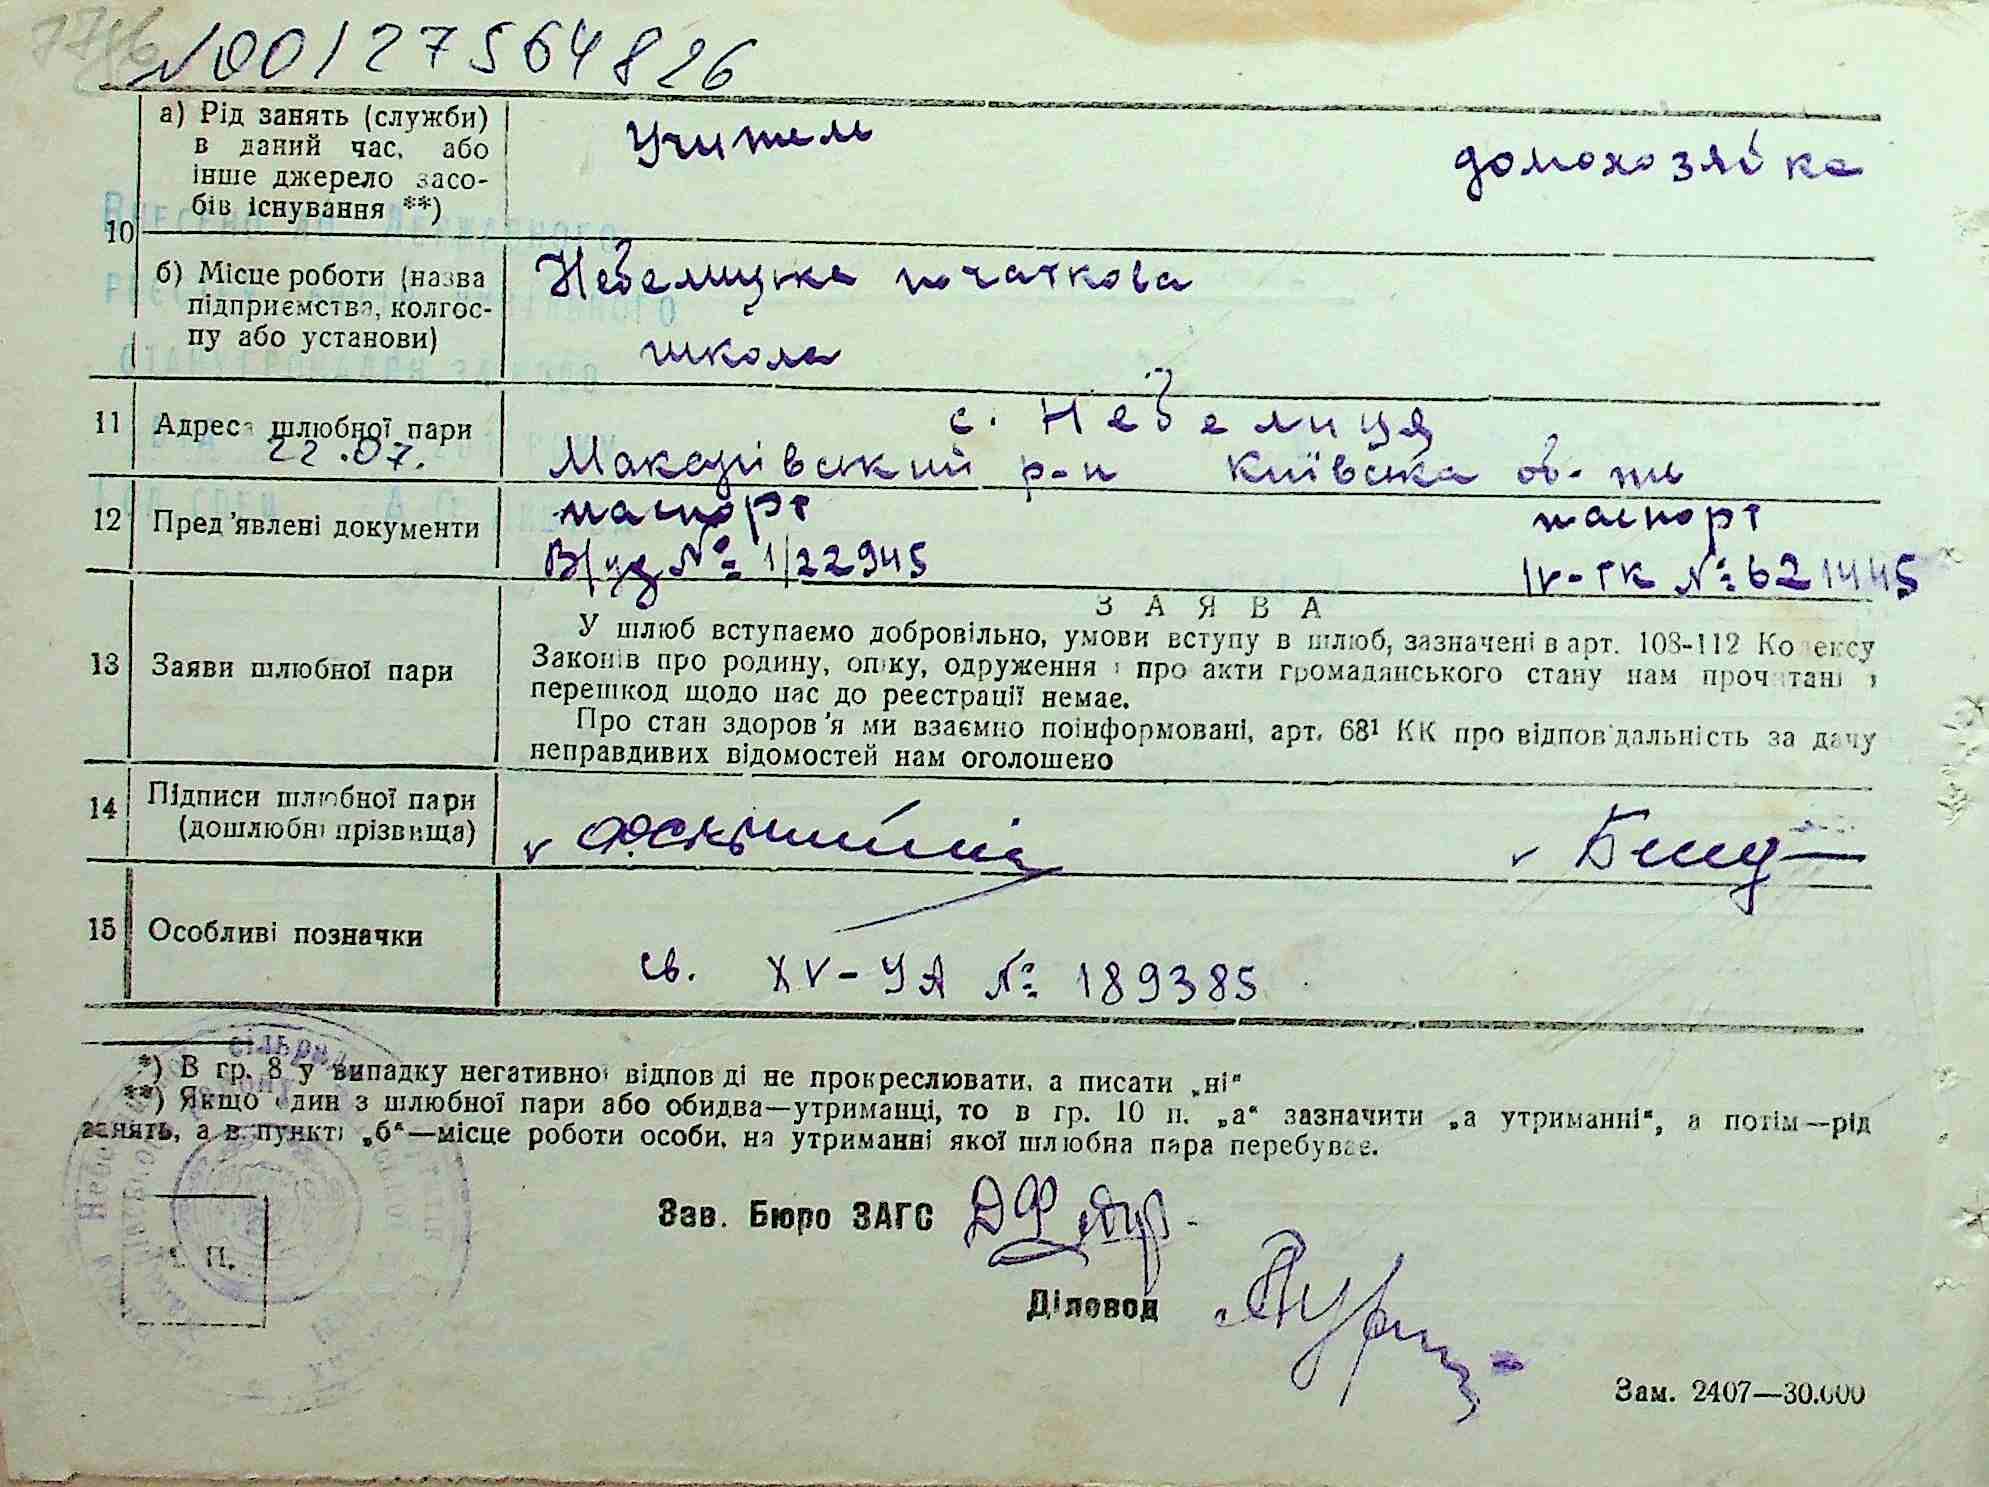 №00127564826
а) Рід занять (служби) в даний час, або інше джерело засобів існування **)
Учитель
домохозяйка
10
б) Місце роботи (назва підприємства, колгоспу або установи)
Небелицька початкова
школа
11 Адреса шлюбної пари
с. Небелиця
Макарівський р-н Київська об-ть
22.07.
12 Пред'явлені документи
паспорт
паспорт
№ 1/22945
IV-ГК № 621445
ЗАЯВА
13 Заяви шлюбної пари
У шлюб вступаємо добровільно, умови вступу в шлюб, зазначені в арт. 108-112 Кодексу
Законів про родину, опіку, одруження і про акти громадянського стану нам прочитані і
перешкод щодо нас до реєстрації немає.
Про стан здоров'я ми взаємно поінформовані, арт. 68¹ КК про відповідальність за дачу
неправдивих відомостей нам оголошено
14 Підписи шлюбної пари
(дошлюбні прізвища)
15 Особливі позначки
св. XV-УА № 189385
*) В гр. 8 у випадку негативної відповіді не прокреслювати, а писати „ні“
**) Якщо один з шлюбної пари або обидва—утриманці, то в гр. 10 п. „а“ зазначити „а утриманні“, а потім—рід
занять, а в пункті „б“—місце роботи особи, на утриманні якої шлюбна пара перебуває.
Зав. Бюро ЗАГС
М. П.
Діловод
Зам. 2407—30.000